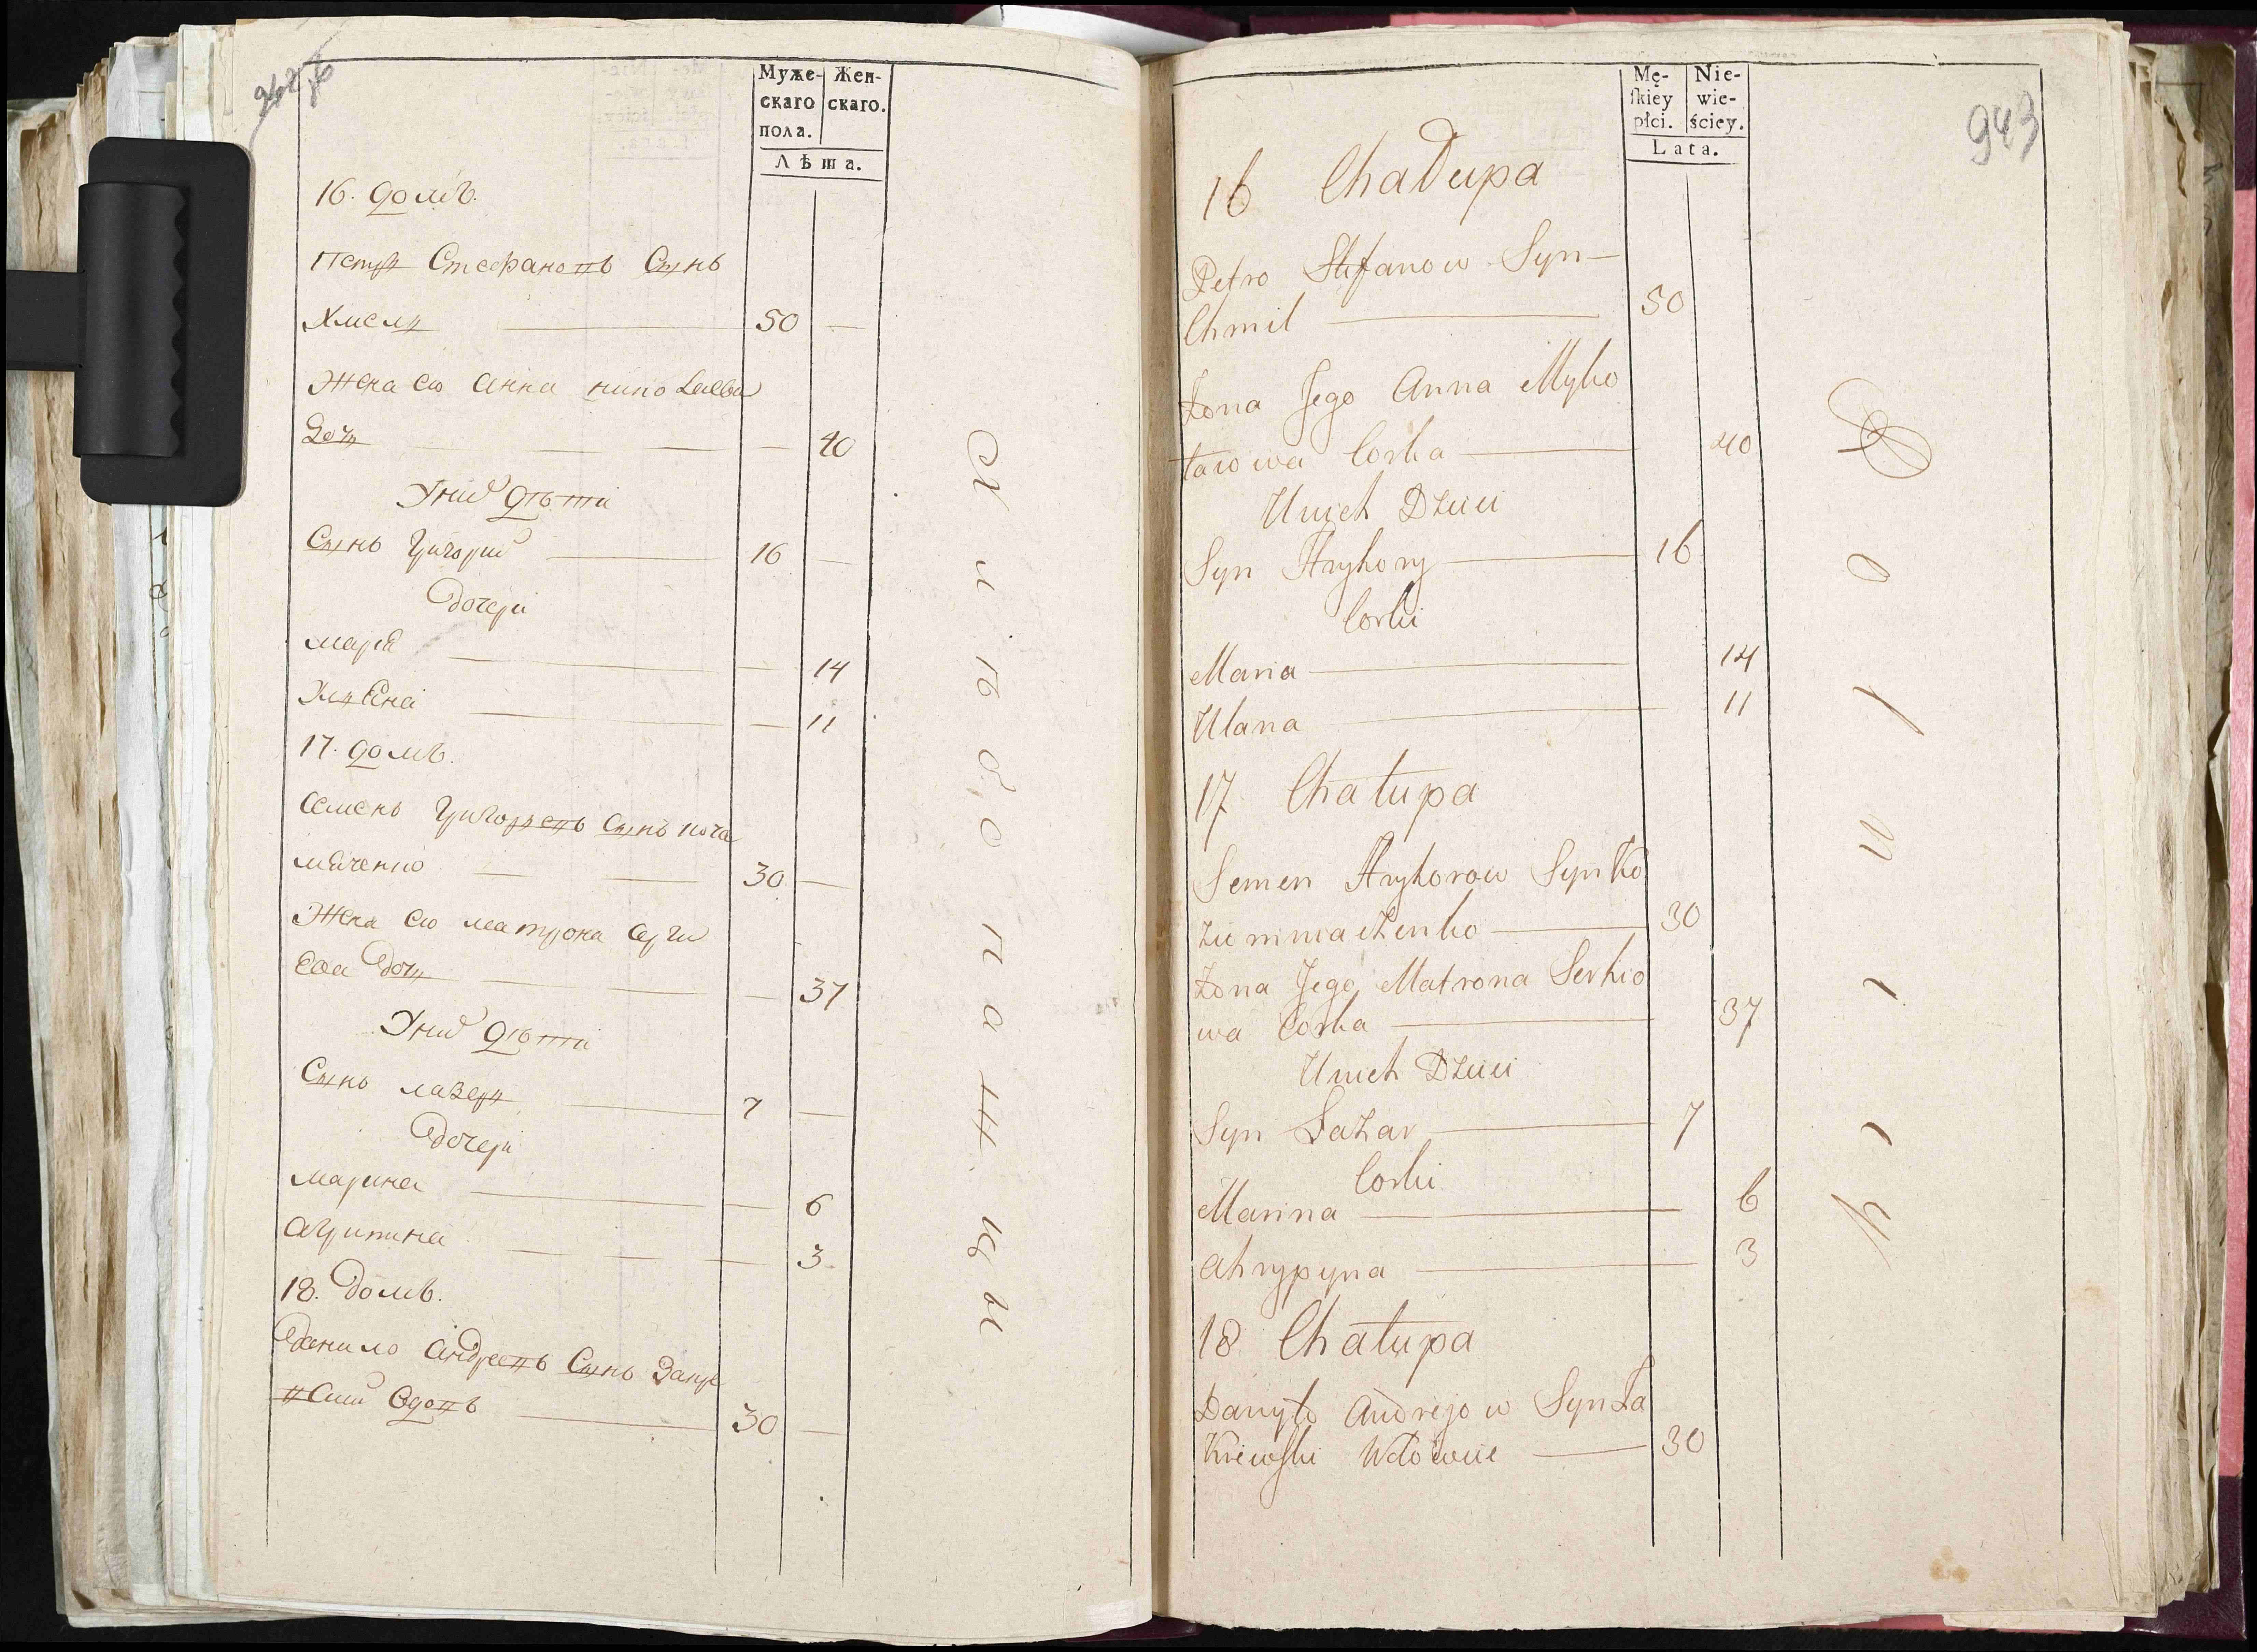 Муже-
скаго
пола.
Жен-
скаго.
Лѣта.
16. домъ.
Петръ Стефановъ Сынъ
Хмель 50
Жена его Анна николаева
Дочь 40
У них дѣти
Сынъ Григорий 16
Дочери
Мария 14
Улiена 11
17. домъ.
Семенъ Григорьевъ Сынъ
30
Жена его матрона Серги
ева дочь 37
У них дѣти
Сынъ лазерь 7
Дочери
Марина 6
Агрипина 3
18. Домъ.
Данило Андреевъ Сынъ Закре
вский Вдовъ 30
943
Mę-
ſkiey
płci.
Nie-
wie-
ściey.
Lata.
16 Chałupa
Petro Stefanow Syn
Chmil 50
Żona Jego Anna Myko
łaiowa Corka 40
U nich Dzieci
Syn Hryhory 16
Corki
Maria 14
Ulana 11
17 Chałupa
Semen Hryhorow Syn Ko
30
Żona Jego Matrona Serhio
wa Corka 37
U nich Dzieci
Syn Łazar 7
Corki
Marina 6
Ahrypyna 3
18 Chałupa
Danyło Andrejow Syn Za
Krewſki Wdowiec 30